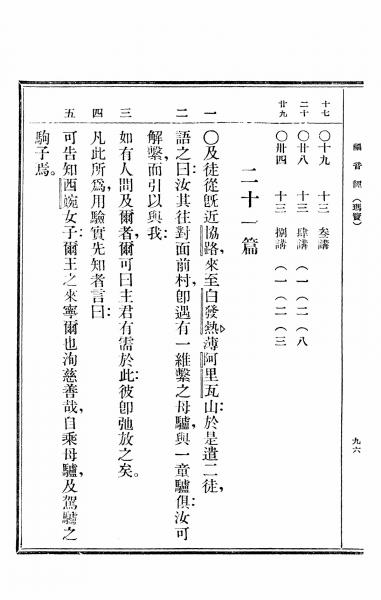 福音經(瑪竇)
九六
十七 〇十九 十三 叁講
二十 〇廿八 十三 肆講 (一(二(八
廿九 〇卅四 十三 捌講 (一(二(三
二十一篇
一 〇及徒從旣近協路,來至白發熱薄阿里瓦山:於是遣二徒,
二 語之曰:汝其往對面前村,卽遇有一維繫之母驢,與一童驢俱:汝可
解繫,而引以與我:
三 如有人間及爾者,爾可曰主君有需於此:彼卽弛放之矣。
四 凡此所爲,用驗實先知者言曰:
五 可告知西婉女子:爾王之來寧爾也洵慈善哉,自乘母驢,及駕驢之
駒子焉。